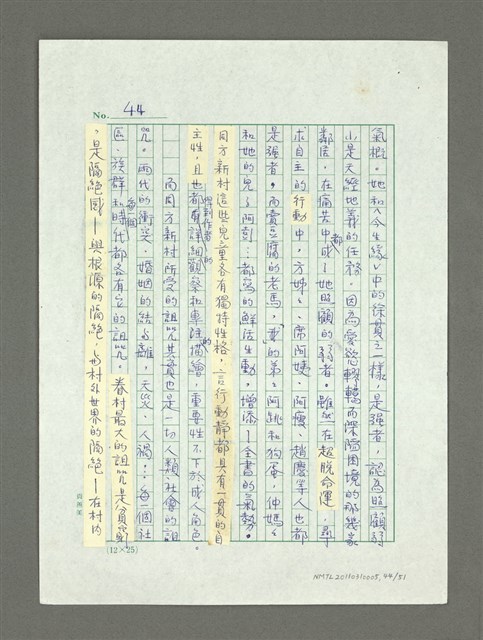 No. 44
氣概。她和〈今生緣〉中的徐貴三一樣，是強者，認為照顧弱
小是天經地義的任務，因為愛慾轇轕而深陷困境的那幾家
鄰居，在痛苦中都成了她照顧的弱者。雖然在超脫命運、尋
求自主的行動中，方姊姊、席阿姨、阿瘦、趙慶等人也都
是強者。而賣豆腐的老馬，「我」的弟弟阿跳和狗蛋，仲媽媽
和她的兒子阿刻…都寫的鮮活生動，增添了全書的氣勢。
同方新村這些兒童各有獨特性格，言行動靜都具有一貫的自
主性，且也都得到作者的詳細觀察和專注的描繪，重要性不下於成人角色。
而同方新村所受的詛咒其實也是一切人類社會的詛
咒。兩代的衝突、婚姻的結與離，天災、人禍…每一個社
區、族群和每一個時代都各有它的詛咒。眷村最大的詛咒是貧窮
，是隔絕感——與根源的隔絕，與村外世界的隔絕——在村內
(12×25)
NMTL20110310005, 44/51